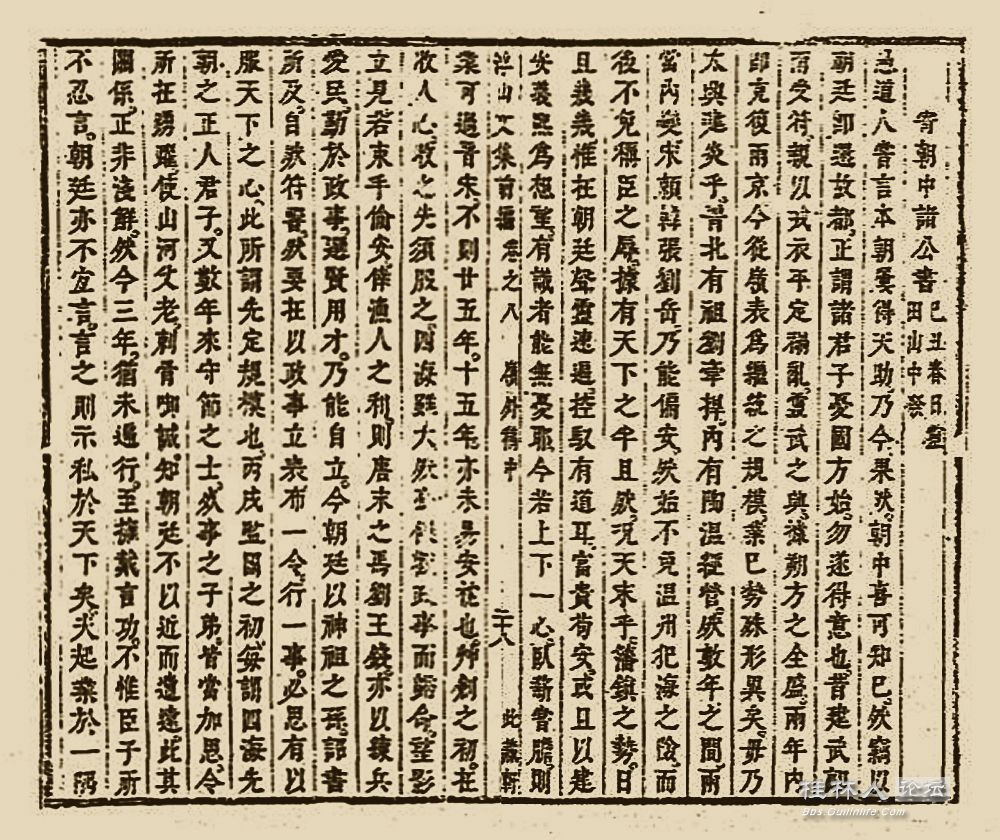 寄朝中諸公書 己丑春日靈田山中發
道人嘗言本朝屡得天助乃今果然朝中喜可知已然竊以
朝廷即還故都正謂諸君子憂國方始勿遂得意也昔建武初
而受符親以戎衣平定禍亂靈武之興據朔方之全盛兩年内
即克復兩京今從嶺表為繼統之規模業已勢殊形異矣毋乃
太興建炎乎晉北有祖劉牽掣内有陶温經營然數年之間兩
當内變宋賴韓張劉岳乃能偏安然始不免温州犯海之險而
後不免稱臣之辱據有天下之半且然况天末乎藩鎮之勢日
且幾幾惟在朝廷聲靈遠邇控馭有道耳富貴苟安或且以建
炎義熙為想望有識者能無憂耶今若上下一心臥薪嘗膽則
浮山文集前編 卷之八 嶺外稿中 二十八 此藏軒
業可過晉宋不則廿五年十五年亦未易安在也艸創之初在
收人心收之先須服之四海雖大然至政事而號令望影
立見若束手偷安俾漁人之利則唐末之馬劉王錢亦以練兵
愛民勤於政事選賢用才乃能自立今朝廷以神祖之孫詔書
所及自然符響然要在以政事立表布一令行一事必思有以
服天下之心此所謂先定規模也丙戌監國之初每謂四海先
朝之正人君子又數年來守節之士然事之子弟皆當加恩令
所在踴躍使山河父老刺骨啣誠知朝廷不以近而遺遠此其
關係正非淺鮮然今三年猶未通行至擁戴言功不惟臣子所
不忍言朝廷亦不宜言言之則示私於天下矣夫起業於一隅
桂林人论坛
bbs.Guilinlife.com